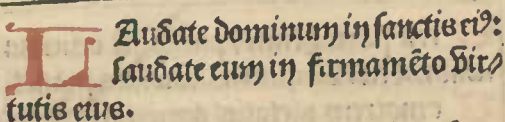 LAudate dominum in sanctis eiꝰ:
laudate eum in firmamēto vir⸗
tutis eius.